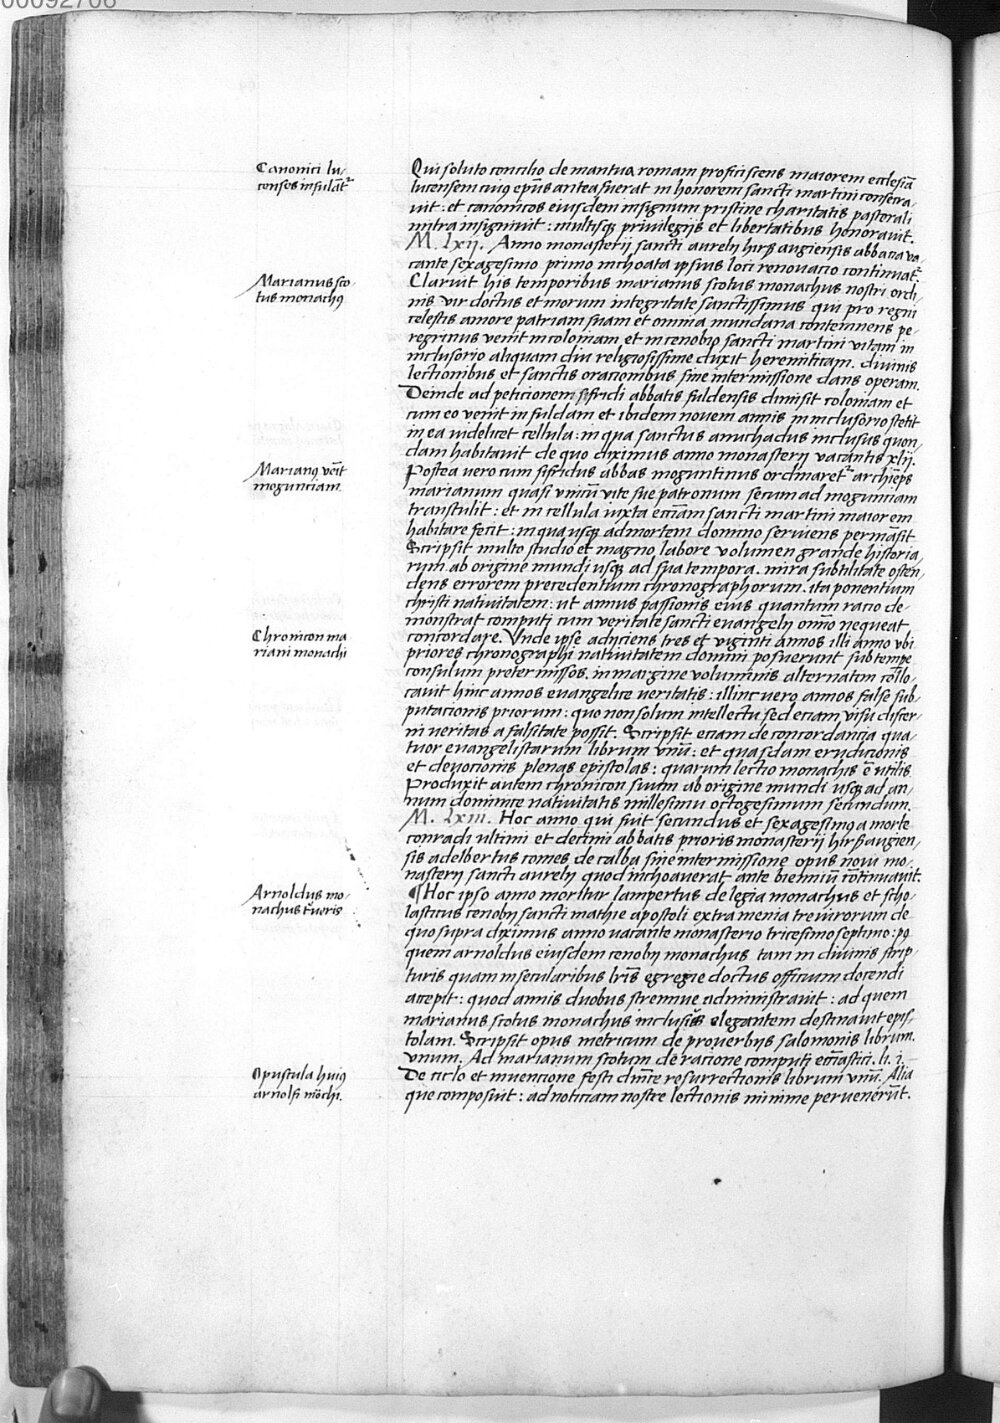 00092706
Canonici lu-
censes insulāt᷑
Qui soluto concilio de mantua romam proficiscens maiorem ecclesiā
lucensem cuiꝯ ep̄us antea fuerat in honorem sancti martini consecra-
uit: et canonicos eiusdem insignum pristine charitatis pastorali
mitra insigniuit: multisqꝫ priuilegijs et libertatibus honorauit.
M. Lxij. Anno monasterij sancti aurelij hirßaugiensis abbacia va-
cante sexagesimo primo inchoata ipsius loci renouacio continuat᷑.
Marianus sco-
tus monachꝯ
Claruit his temporibus marianus scotus monachus nostri ordi-
nis vir doctus et morum integritate sanctissimus qui pro regni
celestis amore patriam suam et omnia mundana contemnens pe-
regrinus venit in coloniam et in cenobio sancti martini vitam in
inclusorio aliquam diu religiosissime duxit heremiticam. diuinis
lectionibus et sanctis oracionibus sine intermissione dans operam.
Deinde ad peticionem sifridi abbatis fuldensis dimisit coloniam et
cum eo venit in fuldam et ibidem novem annis in inclusorio stetit
in ea videlicet cellula: in qua sanctus anuchadus inclusus quon-
dam habitauit de quo diximus anno monasterij vacantis xlij.
Marianꝯ vēit
mogunciam.
Postea vero cum sifridus abbas moguntinus ordinaret᷑ archiep̄s
marianum quasi vnicū vite sue patronum secum ad mogunciam
transtulit: et in cellula iuxta ecc̄iam sancti martini maiorem
habitare fecit: in qua usqꝫ ad mortem domino seruiens permāsit
Scripsit multo studio et magno labore volumen grande historia-
rum ab origine mundi usqꝫ ad sua tempora. mira subtilitate osten-
dens errorem precedentium chronographorum. ita ponentium
christi natiuitatem: ut annus passionis eius quantum racio de-
monstrat computi cum veritate sancti euangelij om̄no nequeat
Chronicon ma
riani monachi
concordare. Vnde ipse adijciens tres et viginti annos illi anno vbi
priores chronographi natiuitatem domini posuerunt sub tempe
consulum pretermissos. in margine voluminis alternatim collo-
cauit hinc annos euangelice veritatis: illinc vero annos false sub-
putacionis priorum: quo non solum intellectu sed eciam visu discer-
ni veritas a falsitate possit. Scripsit eciam de concordancia qua-
tuor euangelistarum librum vnū: et quasdam erudicionis
et deuocionis plenas epistolas: quarum lectio monachis ē utilis
Produxit autem chronicon suum ab origine mundi usqꝫ ad an-
num dominice natiuitatis millesimū octogesimum secundum.
M. Lxiij. Hoc anno qui fuit secundus et sexagesimꝯ a morte
conradi ultimi et decimi abbatis prioris monasterij hirßaugien-
sis adelbertus comes de calba sine intermissione opus noui mo-
nasterij sancti aurelij quod inchoauerat ante bienniū cōtinuauit.
Arnoldus mo-
nachus t᷑ueris
¶ Hoc ipso anno moritur lampertus de legia monachus et scho-
lasticus cenobij sancti mathie apostoli extra menia treuirorum de
quo supra diximus anno vacante monasterio tricesimo septimo: pꝯ
quem arnoldus eiusdem cenobij monachus tam in diuinis scrip-
turis quam in secularibus lr̄is egregie doctus officium docendi
accepit: quod annis duobus strennue administrauit: ad quem
marianus scotus monachus inclusus elegantem destinauit epis-
tolam. Scripsit opus metricum de prouerbijs salomonis librum.
vnum. Ad marianum scotum de racione computi ecc̄iastici. li. i.
Opuscula huiꝯ
arnolfi mōchi.
De ciclo et inuencione festi dn̄ice resurrectionis librum vnū. Alia
que composuit: ad noticiam nostre lectionis minime peruenerūt.